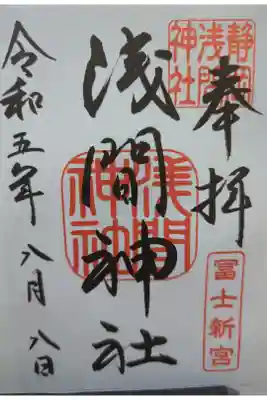 奉拝
静岡
浅間
神社
富士新宮
浅間神社
浅間
神社
令和五年八月八日